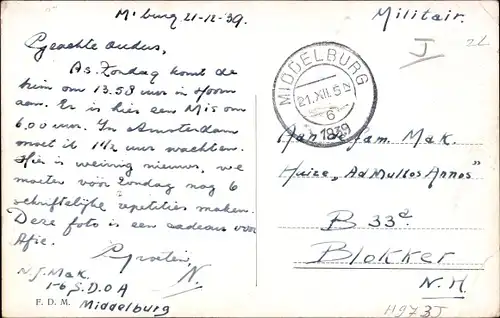 M. burg 21-12-'39.
Geachte ouders,
As. Zondag komt de
trein om 13.58 uur in Hoorn
aan. Er is hier een Mis om
6.00 uur. In Amsterdam
moet ik 1½ uur wachten.
Hier is weinig nieuws, we
moeten vóór Zondag nog 6
schriftelijke repetities maken.
Deze foto is een cadeau voor
Afie.
Groeten,
N.
N.J. Mak.
1-6 S.D.O.A
Middelburg
F. D. M.
Militair.
J
MIDDELBURG
21.XII.6
6
1939
Aan de fam. Mak.
Huize „Ad Multos Annos"
B 33ª.
Blokker
N.H.
H973J